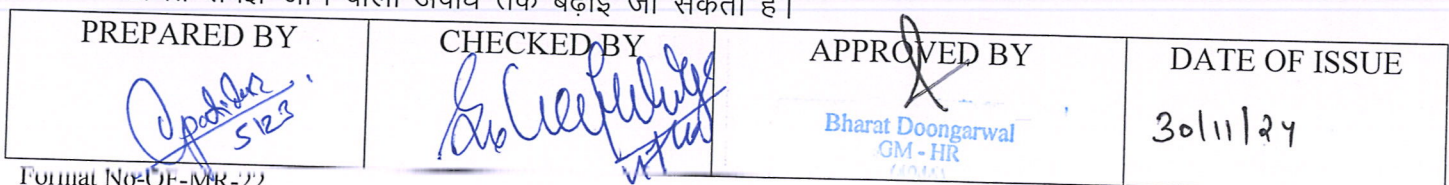 जाने वाली अवधि तक बढ़ाई जा सकती है।
PREPARED BY CHECKED BY APPROVED BY DATE OF ISSUE
5123
Bharat Doongarwal
GM - HR
30/11/24
Format No-QF-MR-22